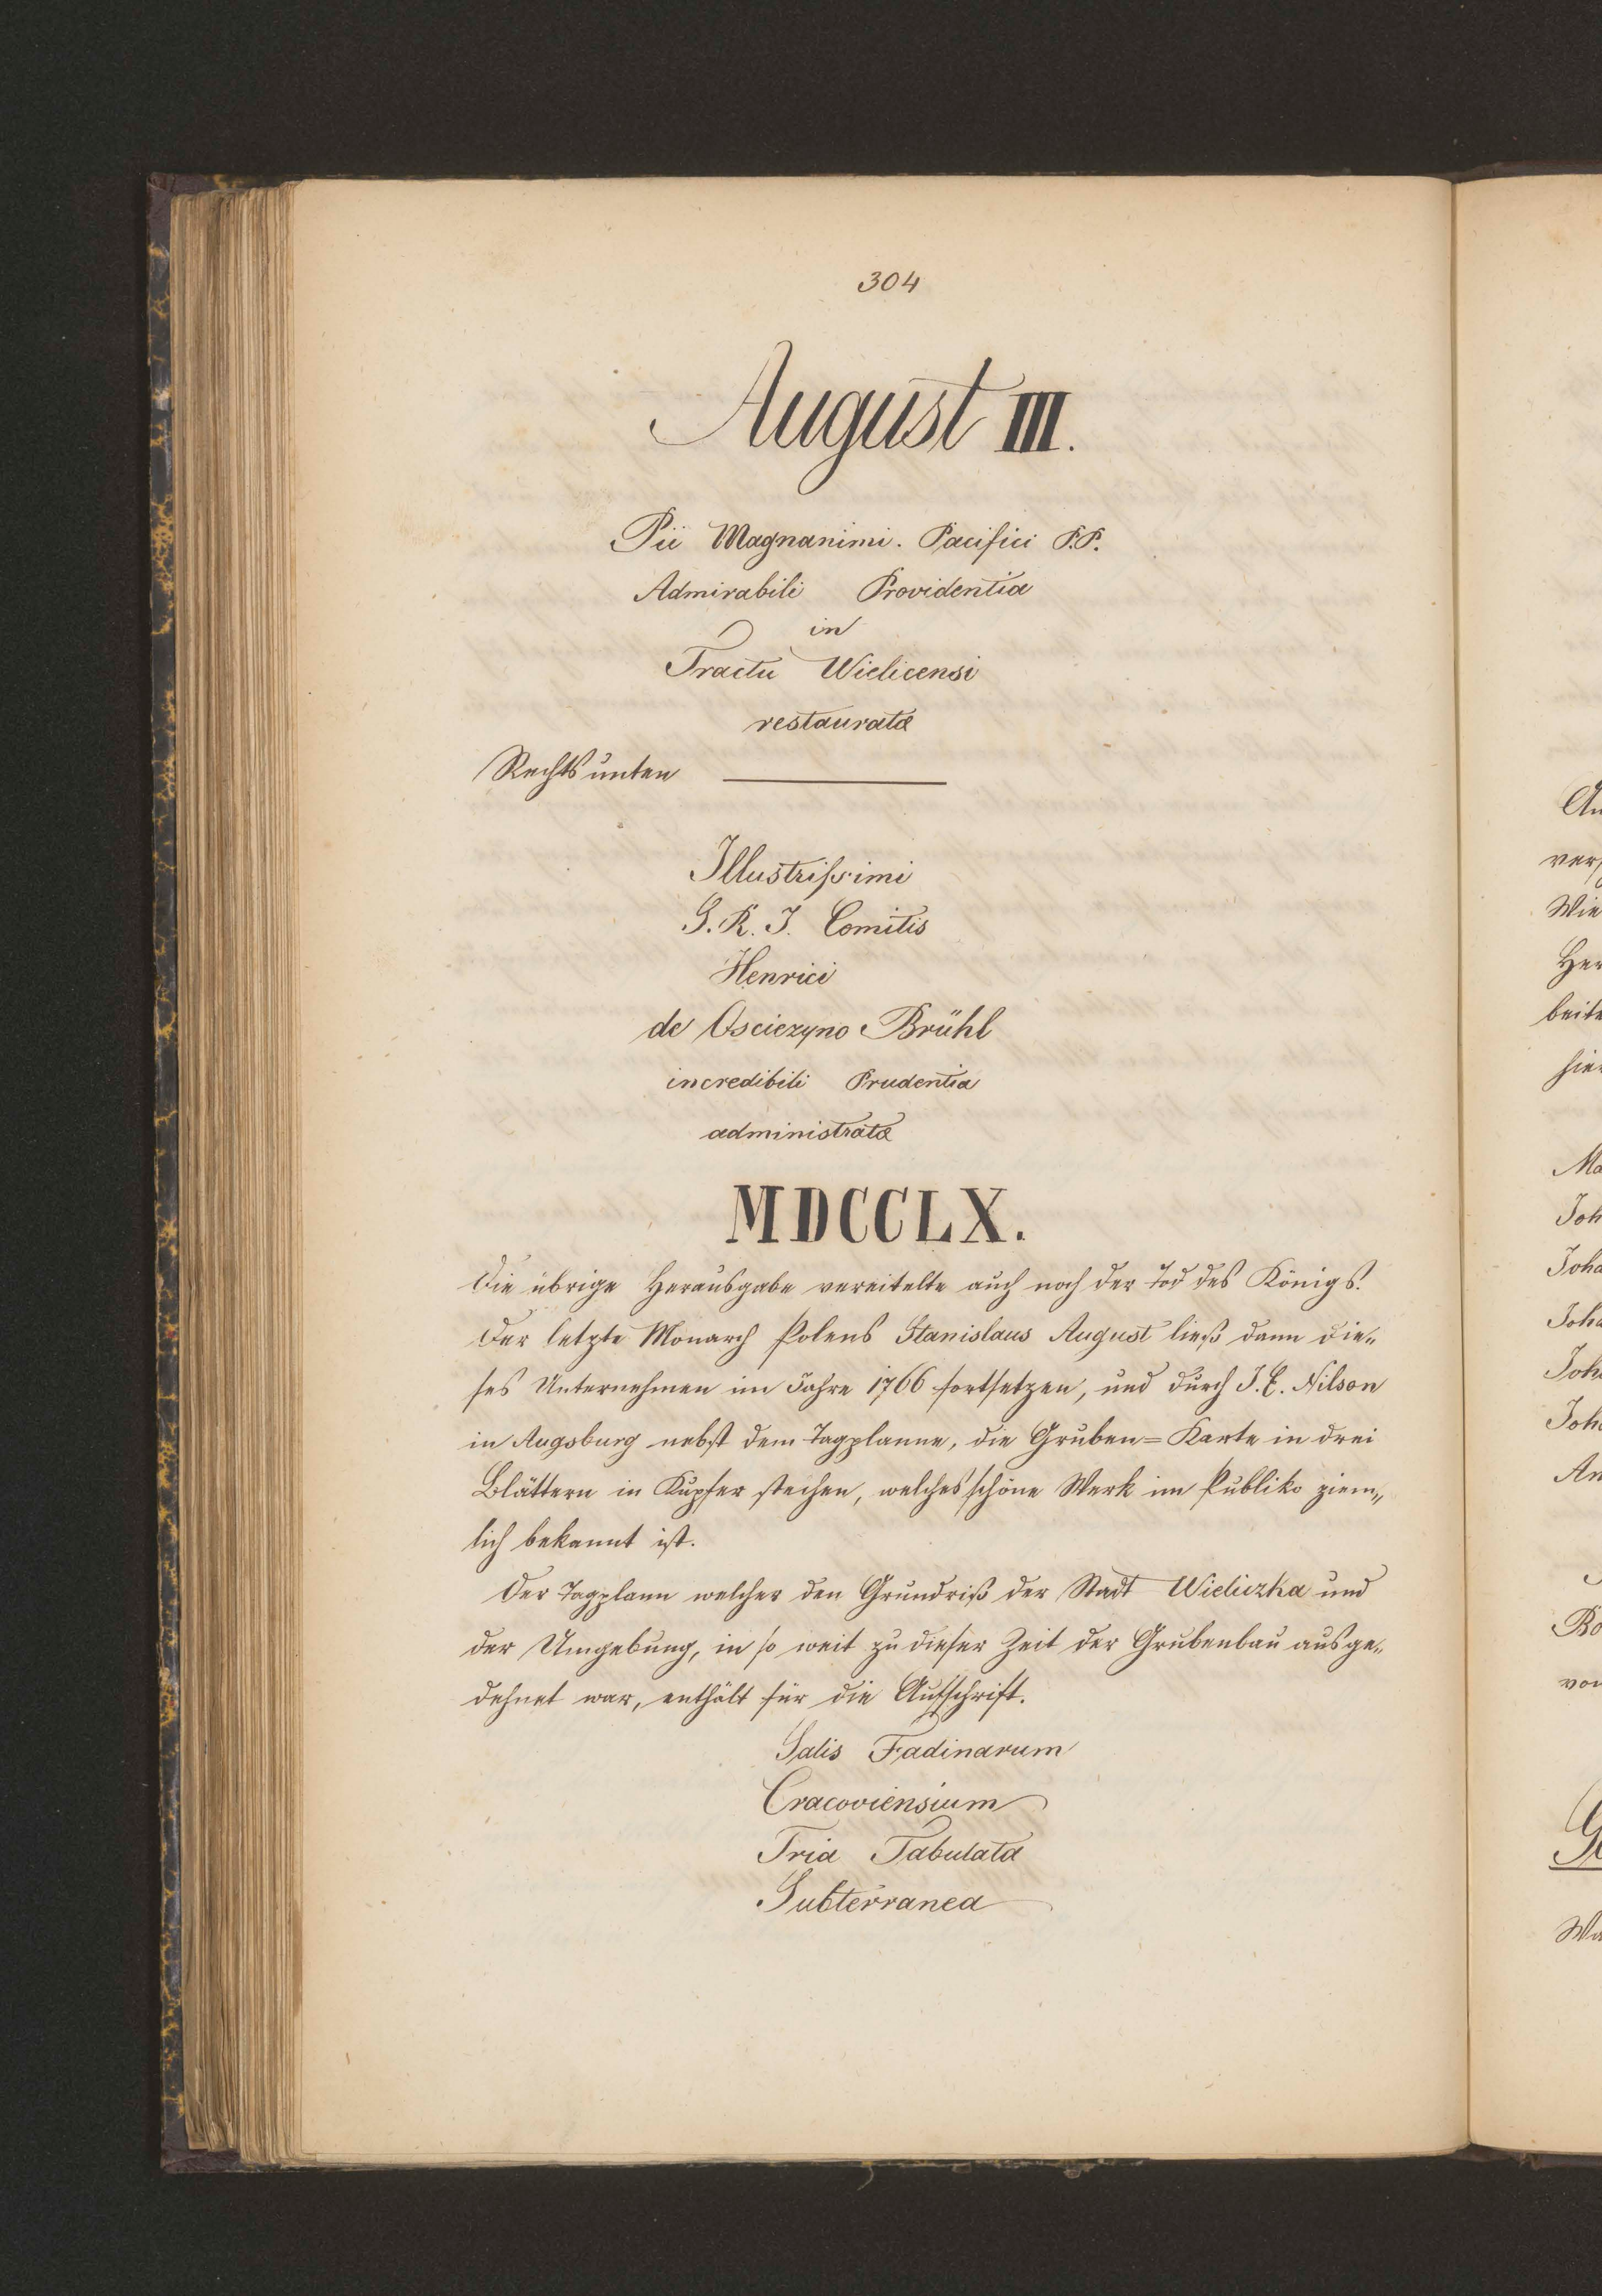 304
August III.
Pii Magnanimi. Pacifici P.P.
Admirabili Providentia
in
Tractu Wielicensi
restaurata
Rechts unten
Illustrissimi
S. R. I. Comitis
Henrici
de Osciezyno Brühl
incredibili Prudentia
administrata
MDCCLX.
Die übrige Herausgabe vereitelte auch noch der Tod des Königs.
Der letzte Monarch Polens Stanislaus August ließ dann die„
ses Unternehmen im Jahre 1766 fortsetzen, und durch J. E. Nilson
in Augsburg nebst dem Tagplanne, die Gruben=Karte in drei
Blättern in Kupfer stechen, welches schöne Werk im Publiko ziem„
lich bekannt ist.
Der Tagplann welcher den Grundriß der Stadt Wieliczka und
der Umgebung, in so weit zu dieser Zeit der Grubenbau ausge„
dehnet war, enthält für die Aufschrift.
Salis Fadinarum
Cracoviensium
Tria Tabulata
Subterranea